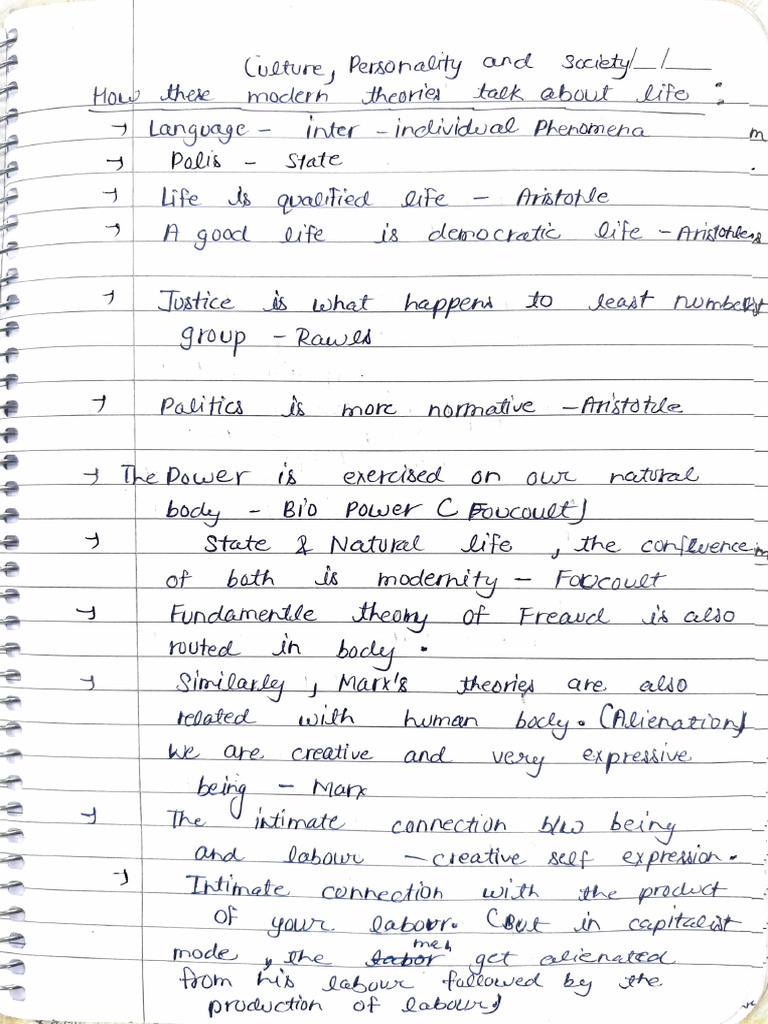 Culture, Personality and Society/_/__
How these modern theories talk about life :
→ Language - inter - individual Phenomena
→ Polis - State
→ Life is qualified life - Aristotle
→ A good life is democratic life - Aristotle
→ Justice is what happens to least numbers
group - Rawls
→ Politics is more normative - Aristotle
→ The Power is exercised on our natural
body - Bio Power (Foucoult)
→ State & Natural life, the confluence
of both is modernity - Foucoult
→ Fundamentle theory of Freaud is also
routed in body.
→ Similarly, Marx's theories are also
related with human body. (Alienation)
We are creative and very expressive
being - Marx
→ The intimate connection b/w being
and labour - creative self expression.
→ Intimate connection with the product
of your labour. (But in capitalist
mode, the men get alienated
from his labour followed by the
production of labour)